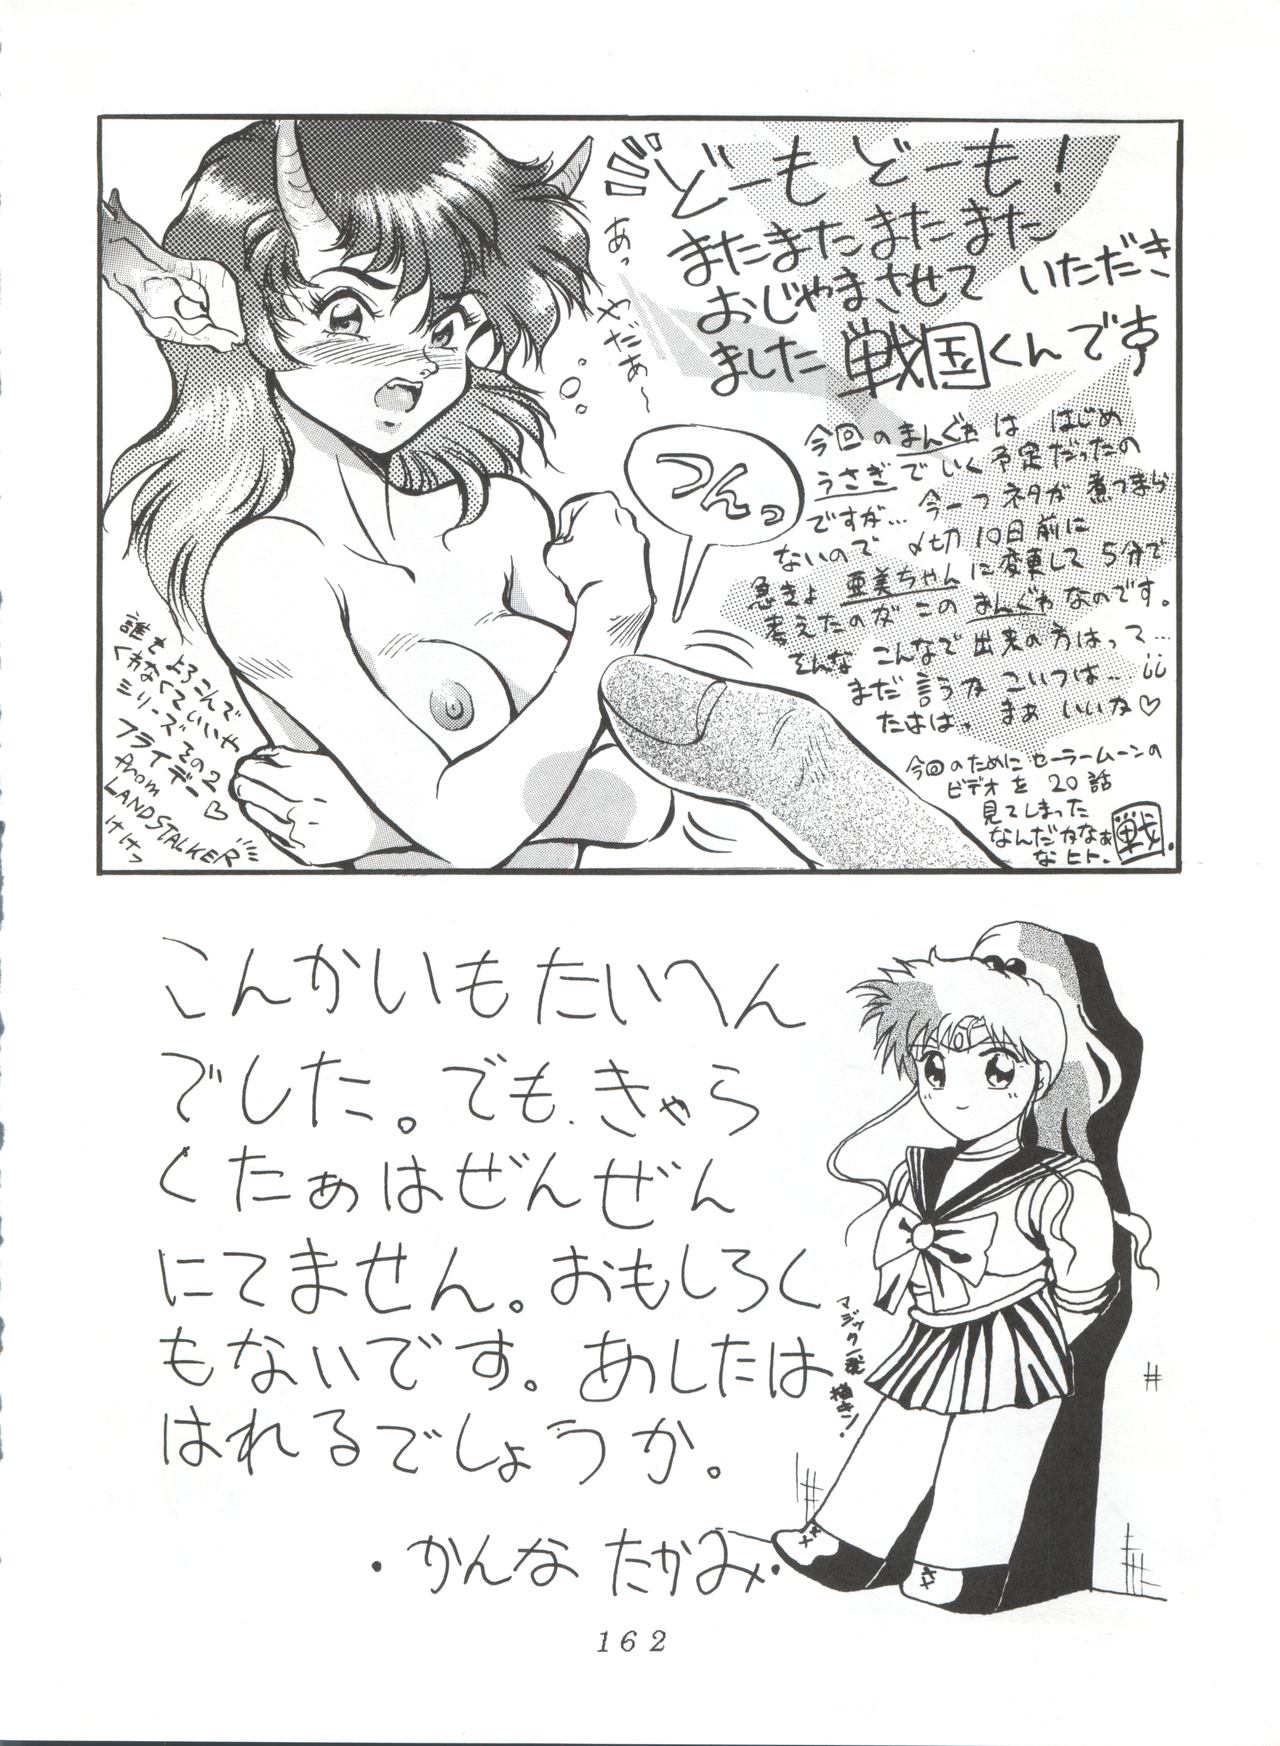 どーも どーも!
またまたまたまたまた
おじゃまさせて いただき
ました 戦国くんです
あっ
やだぁ〜
つんっ
今回のまんがは はじめ
うさぎで いく予定だったの
ですが… 今一つネタが 煮つまら
ないので 〆切10日前に
急きょ 亜美ちゃんに変更して 5分で
考えたのが このまんがなのです。
そんな こんなで 出来の方はって…
まだ 言うか こいつは…
たははっ まぁ いいか♡
今回のために セーラームーンの
ビデオを 20話
見てしまった
なんだかなぁ
なヒト.
戦
誰もよろこんで
くれなくていいや
シリーズ その2
フライデー♡
from
LANDSTALKER
けけっ
こんかいもたいへん
でした。でも、きゃら
くたぁはぜんぜん
にてません。おもしろく
もないです。あしたは
はれるでしょうか。
・かんな たかみ・
162